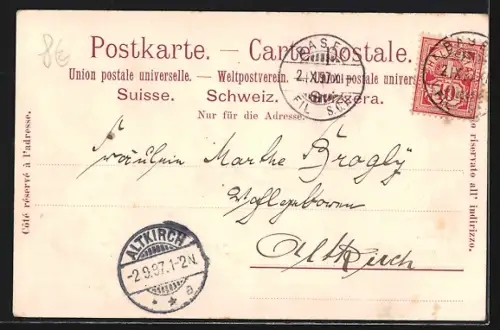 8€
Postkarte. — Carte postale.
Union postale universelle. — Weltpostverein. — Unione postale universale.
Suisse. Schweiz. Svizzera.
Nur für die Adresse.
Côté réservé à l'adresse.
Lato riservato all' indirizzo.
BASEL
2.X.97.
FIL. S.C.B.
10
Fräulein Marthe Brogly
Wohlgeboren
Altkirch
ALTKIRCH
-2.9.97.1-2N.
* * a